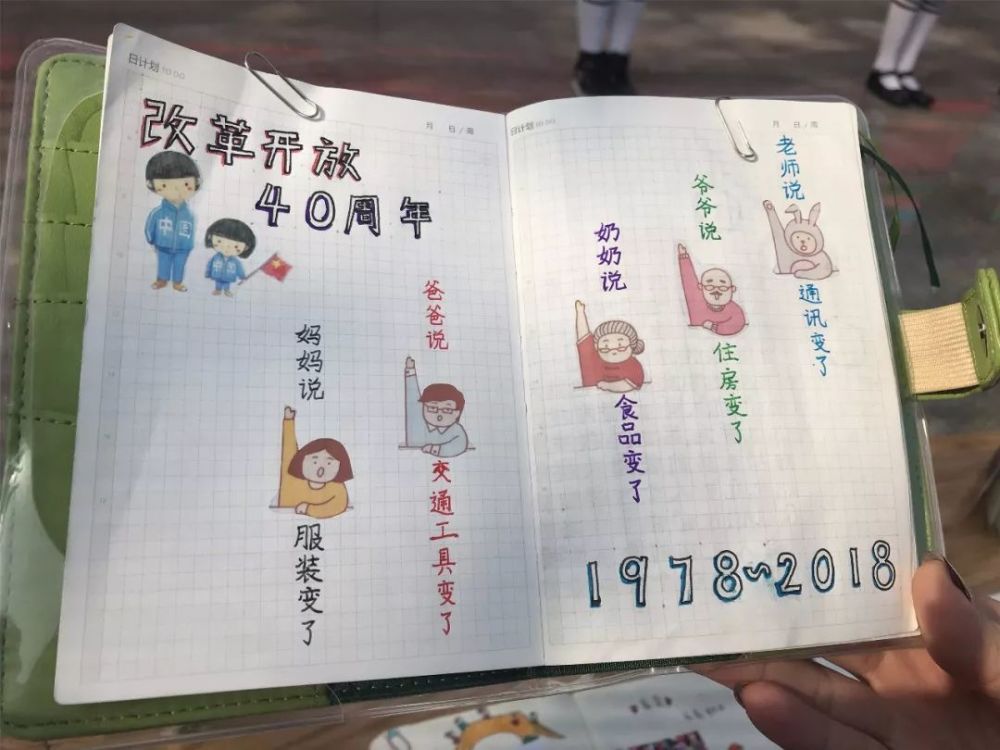 日计划 TO DO
月 日/周
改革开放
40周年
中国
中国
妈妈说
服装变了
爸爸说
交通工具变了
日计划 TO DO
月 日/周
奶奶说
食品变了
爷爷说
住房变了
老师说
通讯变了
1978~2018